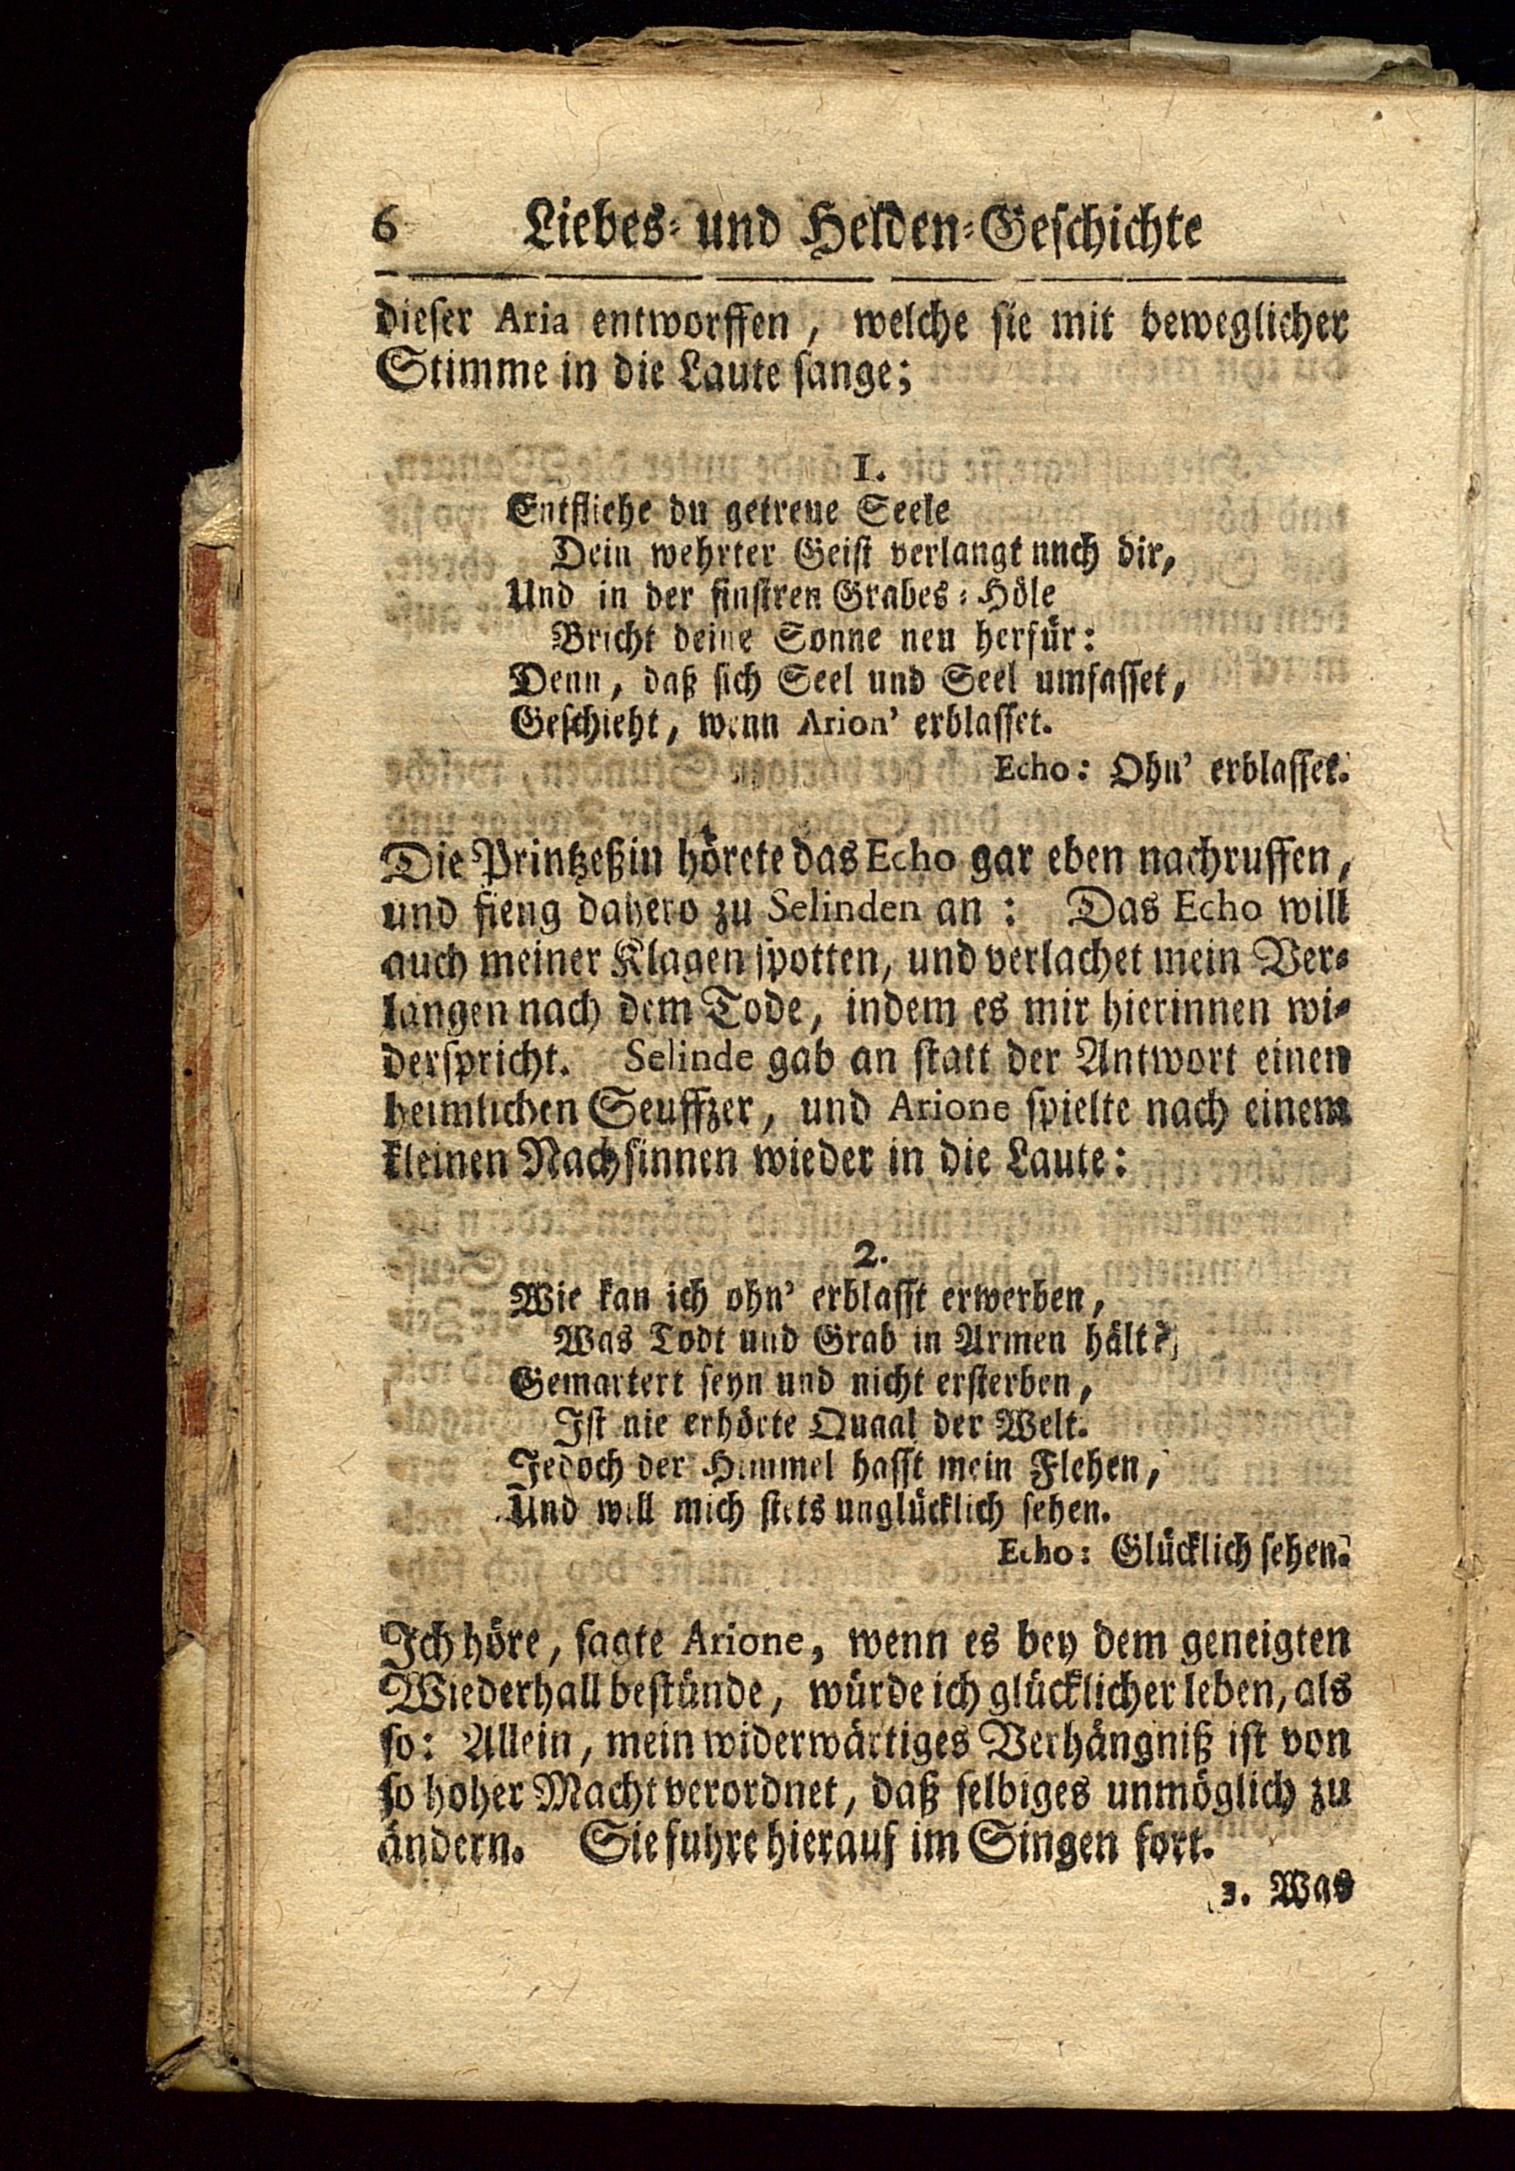 6 Liebes- und Helden-Geschichte
dieser Aria entworffen, welche sie mit beweglicher
Stimme in die Laute sange;
1.
Entfliehe du getreue Seele
Dein wehrter Geist verlangt nnch dir,
Und in der finstren Grabes-Höle
Bricht deine Sonne neu herfür:
Denn, daß sich Seel und Seel umfasset,
Geschieht, wenn Arion' erblasset.
Echo: Ohn' erblasset.
Die Printzeßin hörete das Echo gar eben nachruffen,
und fieng dahero zu Selinden an: Das Echo will
auch meiner Klagen spotten, und verlachet mein Ver-
langen nach dem Tode, indem es mir hierinnen wi-
derspricht. Selinde gab an statt der Antwort einen
heimlichen Seuffzer, und Arione spielte nach einem
kleinen Nachsinnen wieder in die Laute:
2.
Wie kan ich ohn' erblasst erwerben,
Was Todt und Grab in Armen hält?
Gemartert seyn und nicht ersterben,
Ist nie erhörte Quaal der Welt.
Jedoch der Himmel hasst mein Flehen,
Und will mich stets unglücklich sehen.
Echo: Glücklich sehen.
Ich höre, sagte Arione, wenn es bey dem geneigten
Wiederhall bestünde, würde ich glücklicher leben, als
so: Allein, mein widerwärtiges Verhängniß ist von
so hoher Macht verordnet, daß selbiges unmöglich zu
ändern. Sie fuhre hierauf im Singen fort.
3. Was